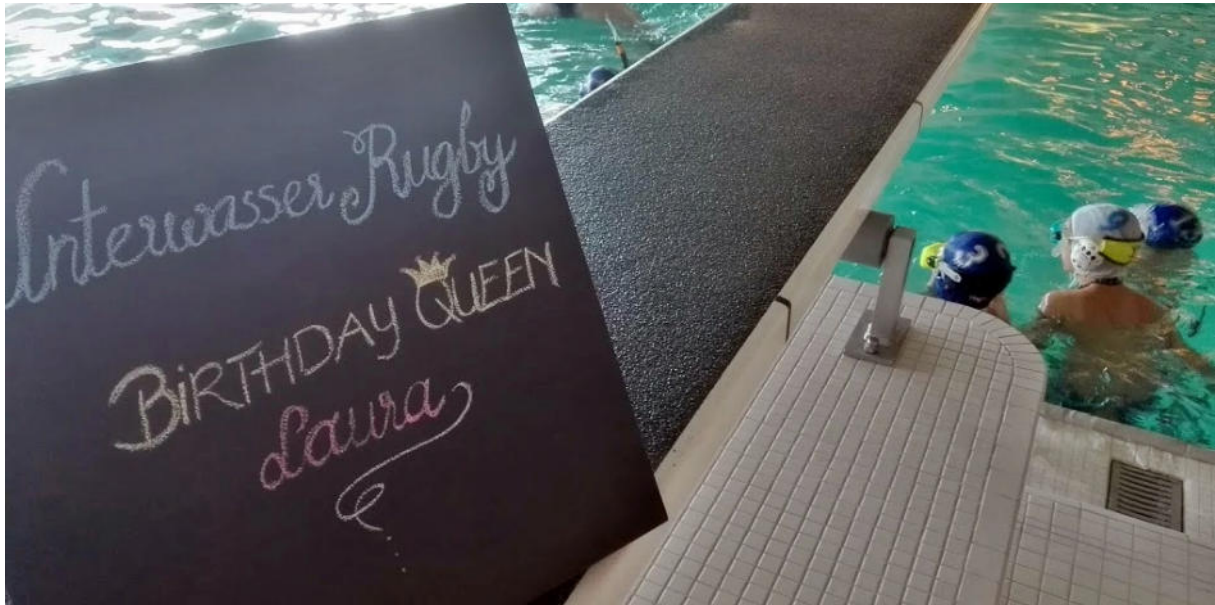 Unterwasser Rugby
BIRTHDAY QUEEN
Laura